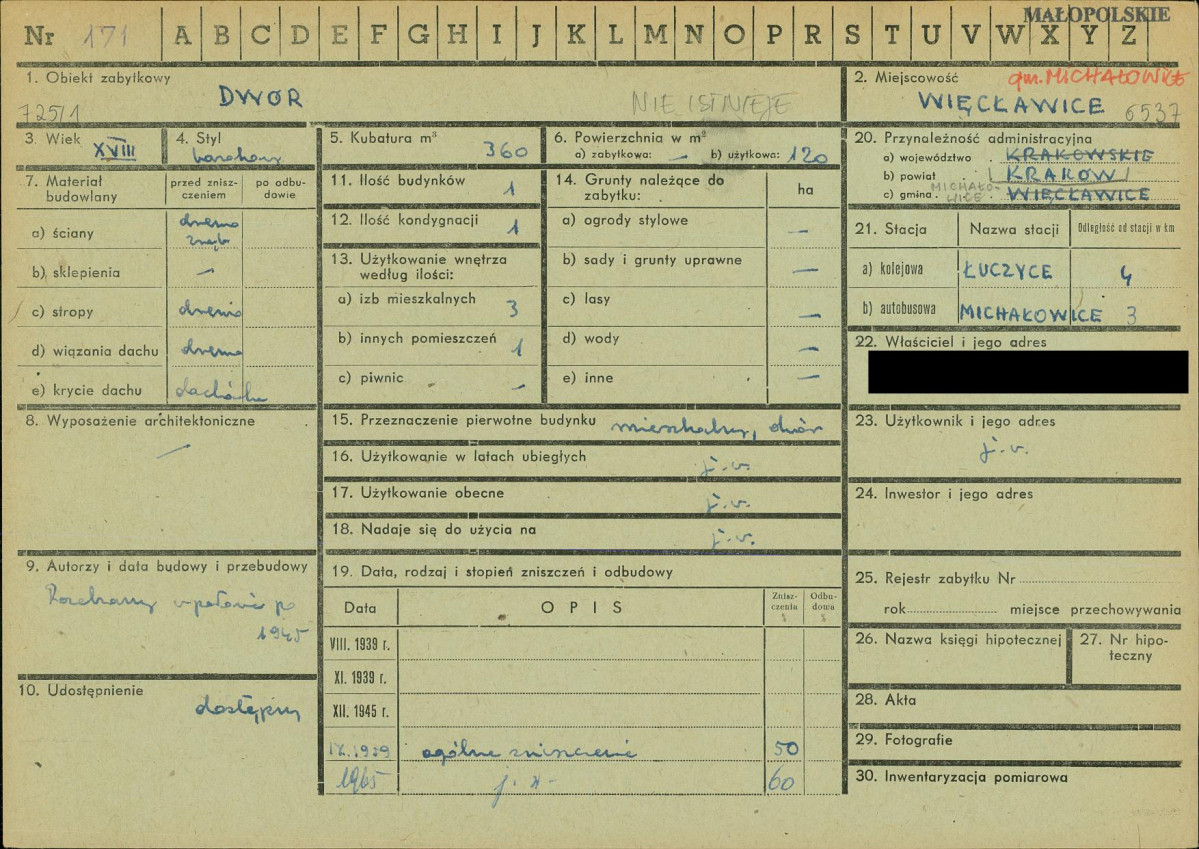 MAŁOPOLSKIE
Nr 171 A B C D E F G H I J K L M N O P R S T U V W X Y Z
1. Obiekt zabytkowy
DWÓR
NIE ISTNIEJE
725/1
2. Miejscowość
gm. MICHAŁOWICE
WIĘCŁAWICE 6537
3. Wiek
XVIII
4. Styl
barokowy
5. Kubatura m³
360
6. Powierzchnia w m²
a) zabytkowa: — b) użytkowa: 120
7. Materiał budowlany
przed zniszczeniem
po odbudowie
a) ściany
drewno
zrąb
b) sklepienia —
c) stropy drewno
d) wiązania dachu drewno
e) krycie dachu dachówka
8. Wyposażenie architektoniczne
—
9. Autorzy i data budowy i przebudowy
Rozebrany w połowie po
1945
10. Udostępnienie
dostępny
11. Ilość budynków
1
12. Ilość kondygnacji
1
13. Użytkowanie wnętrza
według ilości:
a) izb mieszkalnych 3
b) innych pomieszczeń 1
c) piwnic —
14. Grunty należące do
zabytku:
ha
a) ogrody stylowe —
b) sady i grunty uprawne —
c) lasy —
d) wody —
e) inne —
15. Przeznaczenie pierwotne budynku mieszkalny, dwór
16. Użytkowanie w latach ubiegłych j. w.
17. Użytkowanie obecne j. w.
18. Nadaje się do użycia na j. w.
19. Data, rodzaj i stopień zniszczeń i odbudowy
Data OPIS Zniszczenia % Odbudowa %
VIII. 1939 r.
XI. 1939 r.
XII. 1945 r.
IX. 1959 ogólne zniszczenie 50
1965 j. w. 60
20. Przynależność administracyjna
a) województwo KRAKOWSKIE
b) powiat KRAKÓW
c) gmina MICHAŁOWICE WIĘCŁAWICE
21. Stacja Nazwa stacji Odległość od stacji w km
a) kolejowa ŁUCZYCE 4
b) autobusowa MICHAŁOWICE 3
22. Właściciel i jego adres
23. Użytkownik i jego adres
j. w.
24. Inwestor i jego adres
25. Rejestr zabytku Nr
rok miejsce przechowywania
26. Nazwa księgi hipotecznej
27. Nr hipoteczny
28. Akta
29. Fotografie
30. Inwentaryzacja pomiarowa